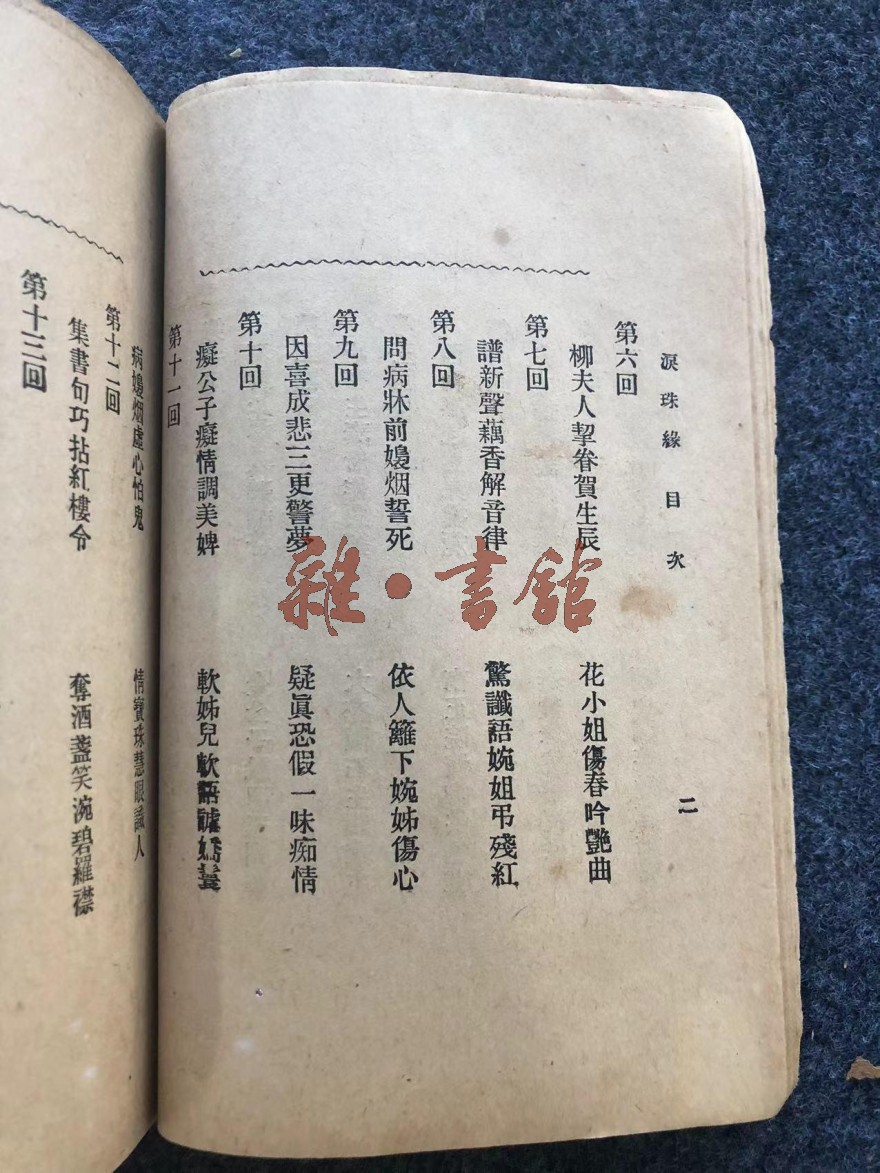 淚珠緣 目次
二
第六回
柳夫人挈眷賀生辰 花小姐傷春吟艷曲
第七回
譜新聲藕香解音律 驚讖語婉姐弔殘紅
第八回
問病牀前嫚烟誓死 依人籬下婉姊傷心
第九回
因喜成悲三更警夢 疑眞恐假一味痴情
第十回
癡公子癡情調美婢 軟姊兒軟語謔嬌鬟
第十一回
病嫚烟虛心怕鬼 情寶珠慧眼識人
第十二回
集書句巧拈紅樓令 奪酒盞笑涴碧羅襟
第十三回
雜·書館